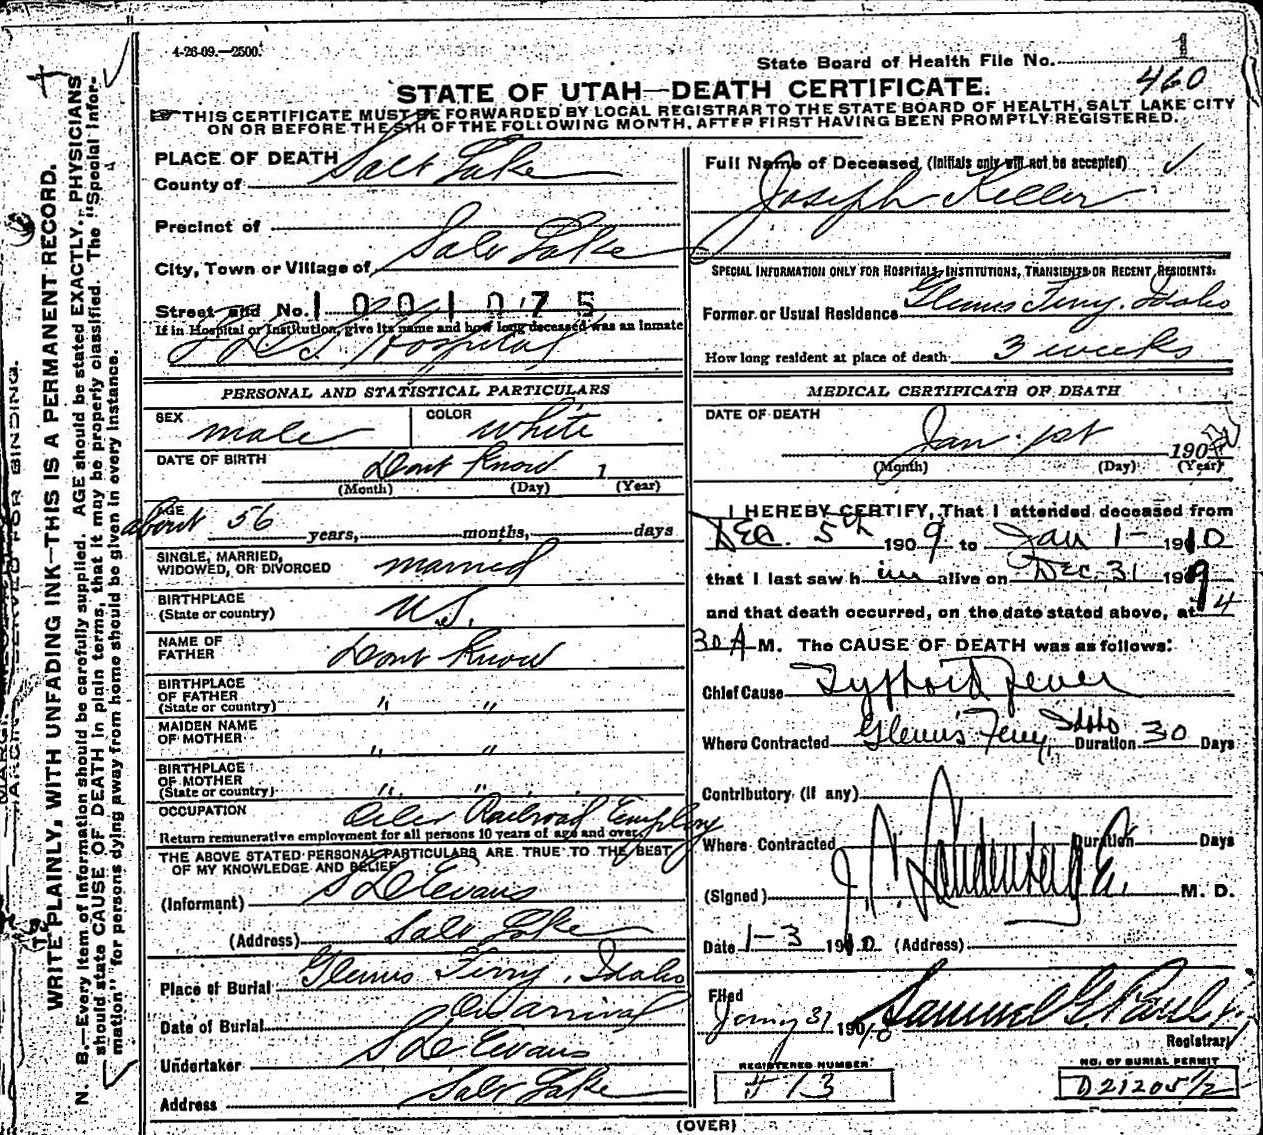 4-26-09.—2500.
1
State Board of Health File No.
460
STATE OF UTAH—DEATH CERTIFICATE.
THIS CERTIFICATE MUST BE FORWARDED BY LOCAL REGISTRAR TO THE STATE BOARD OF HEALTH, SALT LAKE CITY
ON OR BEFORE THE 5TH OF THE FOLLOWING MONTH, AFTER FIRST HAVING BEEN PROMPTLY REGISTERED.
WRITE PLAINLY, WITH UNFADING INK—THIS IS A PERMANENT RECORD.
N. B.—Every item of information should be carefully supplied. AGE should be stated EXACTLY. PHYSICIANS
should state CAUSE OF DEATH in plain terms, that it may be properly classified. The "Special Infor-
mation" for persons dying away from home should be given in every instance.
PLACE OF DEATH
County of Salt Lake
Precinct of
City, Town or Village of Salt Lake
Street and No. 1001075
If in Hospital or Institution, give its name and how long deceased was an inmate
L D S Hospital
PERSONAL AND STATISTICAL PARTICULARS
SEX male COLOR white
DATE OF BIRTH Dont Know 1
(Month) (Day) (Year)
AGE about 56 years, months, days
SINGLE, MARRIED, WIDOWED, OR DIVORCED married
BIRTHPLACE (State or country) U.S.
NAME OF FATHER Dont Know
BIRTHPLACE OF FATHER (State or country) " "
MAIDEN NAME OF MOTHER " "
BIRTHPLACE OF MOTHER (State or country) " "
OCCUPATION Oiler Railroad Employ
Return remunerative employment for all persons 10 years of age and over.
THE ABOVE STATED PERSONAL PARTICULARS ARE TRUE TO THE BEST
OF MY KNOWLEDGE AND BELIEF
(Informant) S D Evans
(Address) Salt Lake
Place of Burial Glenns Ferry, Idaho
Date of Burial On arrival
Undertaker S D Evans
Address Salt Lake
Full Name of Deceased (Initials only will not be accepted)
Joseph Keller
SPECIAL INFORMATION ONLY FOR HOSPITALS, INSTITUTIONS, TRANSIENTS OR RECENT RESIDENTS:
Former or Usual Residence Glenns Ferry, Idaho
How long resident at place of death 3 weeks
MEDICAL CERTIFICATE OF DEATH
DATE OF DEATH
Jan. 1st 190
(Month) (Day) (Year)
I HEREBY CERTIFY, That I attended deceased from
Dec. 5th 1909 to Jan 1 - 1910
that I last saw him alive on Dec. 31 1909
and that death occurred, on the date stated above, at 4
30 A M. The CAUSE OF DEATH was as follows:
Chief Cause Typhoid Fever
Where Contracted Glenns Ferry, Idaho Duration 30 Days
Contributory (if any)
Where Contracted Duration Days
(Signed) M. D.
Date 1-3 1910 (Address)
Filed
Jany 31 1910 Samuel G. Paul
Registrar
REGISTERED NUMBER
# 13
NO. OF BURIAL PERMIT
D21205 1/2
(OVER)